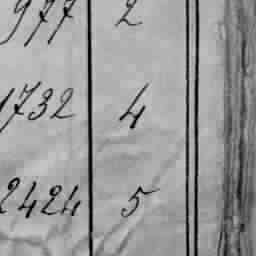 977 2
1732 4
2424 5